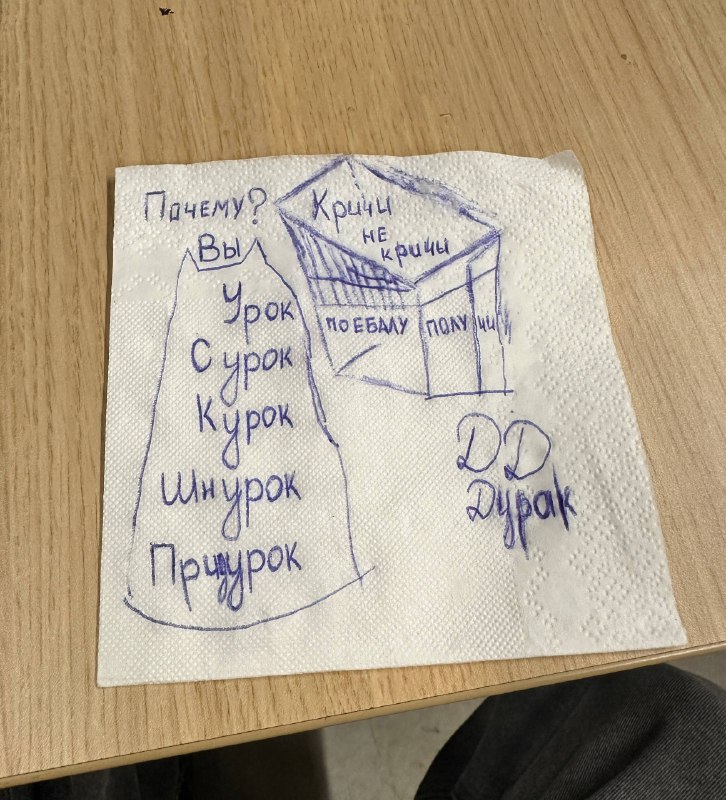 Почему?
Вы
Урок
Сурок
Курок
Шнурок
Прицурок
Кричи
не
кричи
ПОЕБАЛУ ПОЛУ ЧИ
Д Д
Дурак